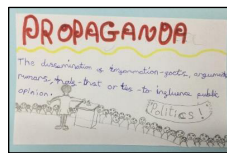 PROPAGANDA
The dissemination of information-facts, arguments
rumors, half-truths or lies -to influence public
opinion.
Politics!